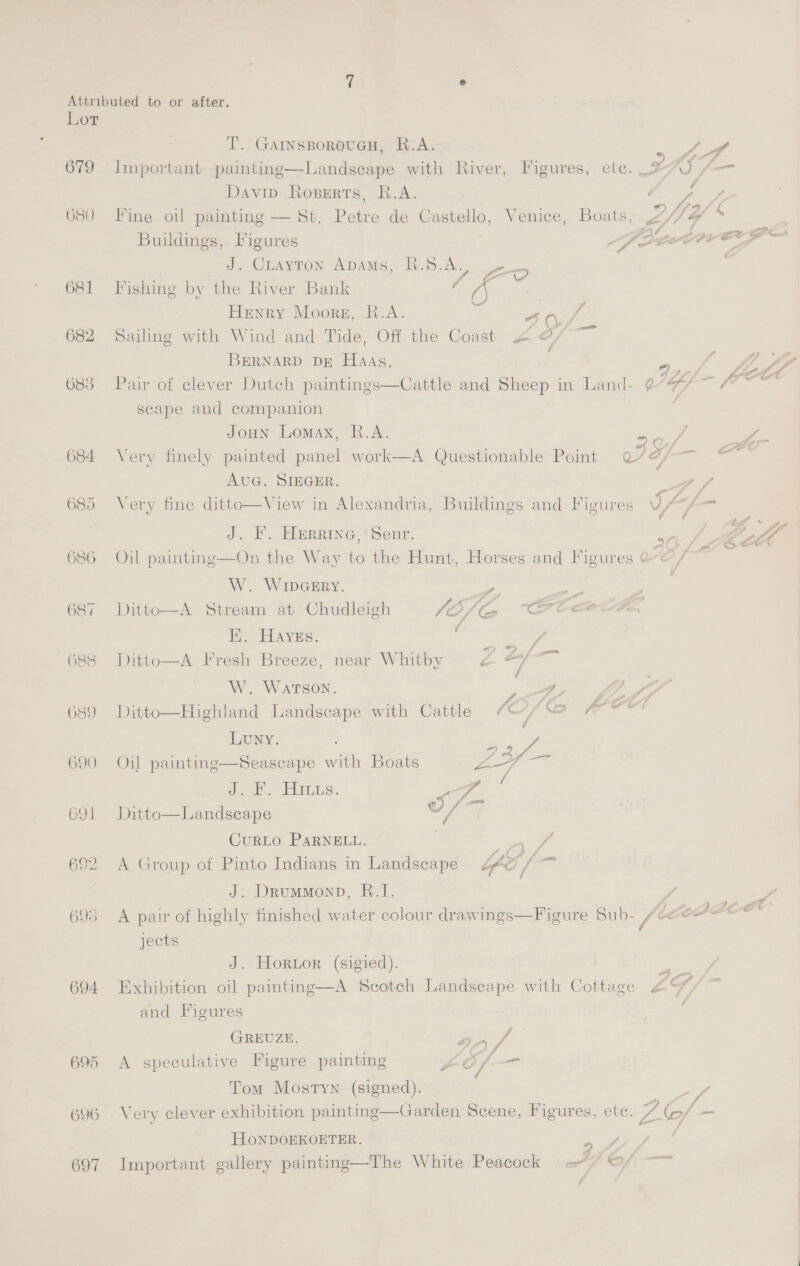 7
Attributed to or after.
Lot
T. Gainsborough, R.A.
679 Important painting—Landscape with River, Figures, etc.
David Roberts, R.A.
680 Fine oil painting — St. Petre de Castello, Venice, Boats,
Buildings, Figures
J. Clayton Adams, R.S.A.
681 Fishing by the River Bank
Henry Moore, R.A.
682 Sailing with Wind and Tide, Off the Coast
Bernard de Haas.
683 Pair of clever Dutch paintings—Cattle and Sheep in Land-
scape and companion
John Lomax, R.A.
684 Very finely painted panel work—A Questionable Point
Aug. Sieger.
685 Very fine ditto—View in Alexandria, Buildings and Figures
J. F. Herring, Senr.
686 Oil painting—On the Way to the Hunt, Horses and Figures
W. Widgery.
687 Ditto—A Stream at Chudleigh 10/6
E. Hayes.
688 Ditto—A Fresh Breeze, near Whitby
W. Watson.
689 Ditto—Highland Landscape with Cattle
Luny.
690 Oil painting—Seascape with Boats
J. F. Hills.
691 Ditto—Landscape 5/-
Curlo Parnell.
692 A Group of Pinto Indians in Landscape
J. Drummond, R.I.
693 A pair of highly finished water colour drawings—Figure Sub-
jects
J. Horlor (sigied).
694 Exhibition oil painting—A Scotch Landscape with Cottage
and Figures
Greuze.
695 A speculative Figure painting
Tom Mostyn (signed).
696 Very clever exhibition painting—Garden Scene, Figures, etc.
Hondoekoeter.
697 Important gallery painting—The White Peacock